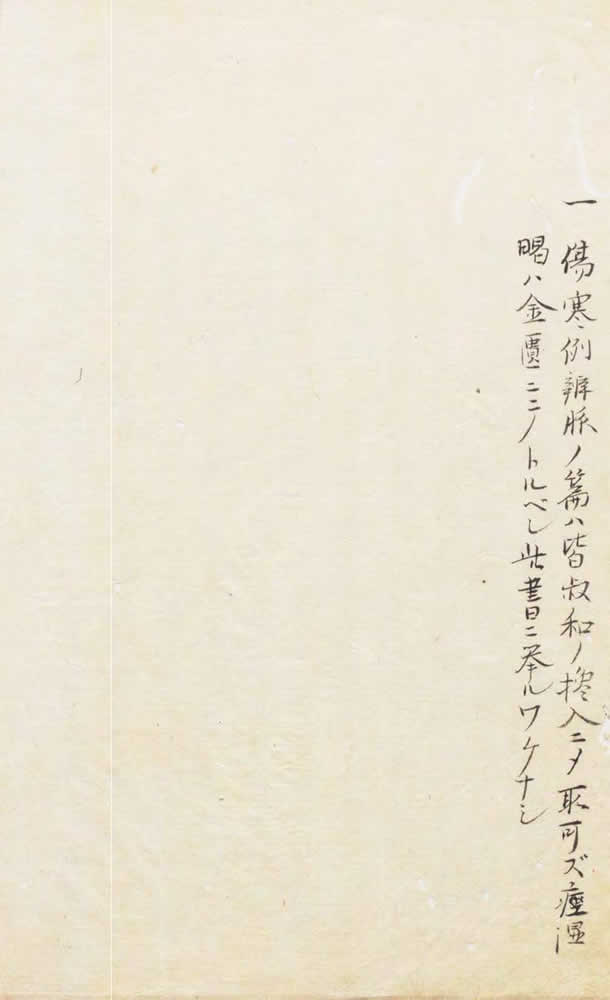 一 傷寒例辨脉ノ篇ハ皆叔和ノ攙入ニメ取可ズ痙湿
暍ハ金匱ニ二ノトルベシ此書ニ挙ルワケナシ